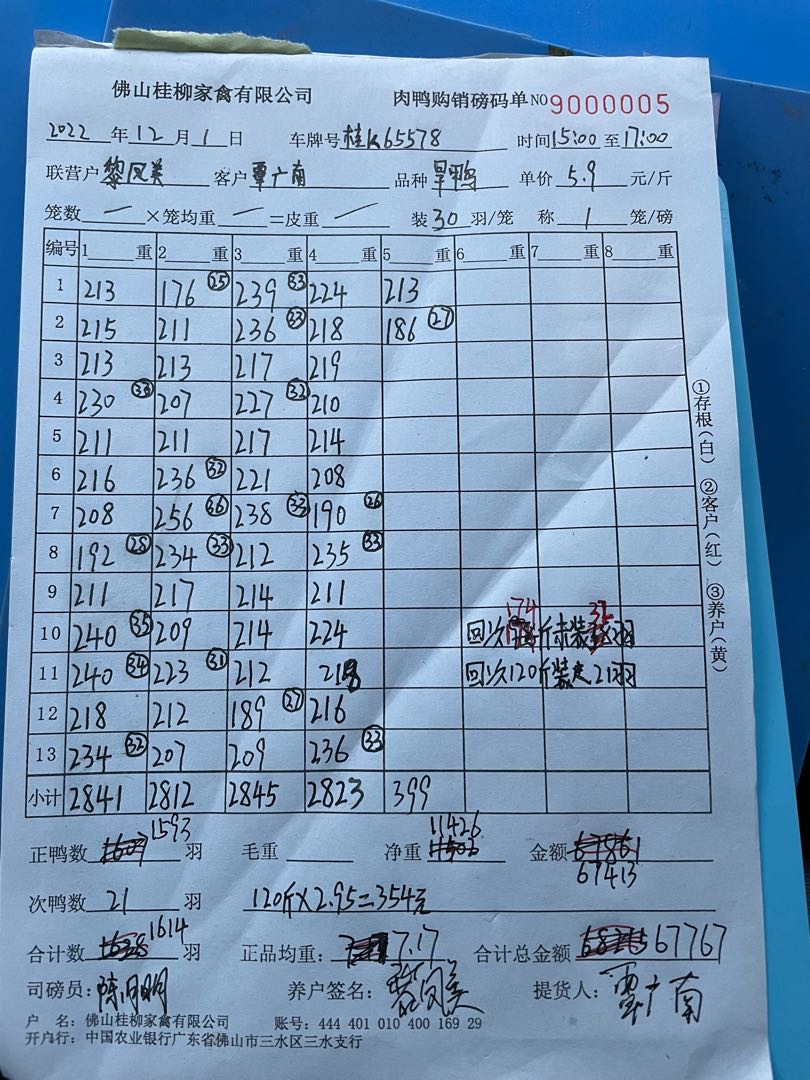 佛山桂柳家禽有限公司 肉鸭购销磅码单 NO 9000005
2022 年 12 月 1 日 车牌号 桂K65578 时间 15:00 至 17:00
联营户 黎凤美 客户 覃广南 品种 旱鸭 单价 5.9 元/斤
笼数 一 ×笼均重 一 =皮重 一 装 30 羽/笼 称 1 笼/磅
编号 1 重 2 重 3 重 4 重 5 重 6 重 7 重 8 重
1 213 176 ㉕ 239 ㉝ 224 213
2 215 211 236 ㉝ 218 186 ㉗
3 213 213 217 219
4 230 207 227 ㉜ 210
5 211 211 217 214
6 216 236 ㉜ 221 208
7 208 256 ㊱ 238 ㉝ 190 ㉖
8 192 ㉘ 234 ㉝ 212 235 ㉝
9 211 217 214 211
10 240 ㉟ 209 214 224 回次 174 斤 装 羽
11 240 ㉞ 223 ㉛ 212 218 回次120斤装 21羽
12 218 212 189 ㉗ 216
13 234 ㉜ 207 209 236 ㉝
小计 2841 2812 2845 2823 399
正鸭数 1593 羽 毛重 净重 11426 金额 67861
67413
次鸭数 21 羽 120斤×2.95=354元
合计数 1614 羽 正品均重: 7.17 合计总金额 67767
司磅员: 陈明明 养户签名: 黎凤美 提货人: 覃广南
户 名: 佛山桂柳家禽有限公司 账号: 444 401 010 400 169 29
开户行: 中国农业银行广东省佛山市三水区三水支行
①存根(白) ②客户(红) ③养户(黄)